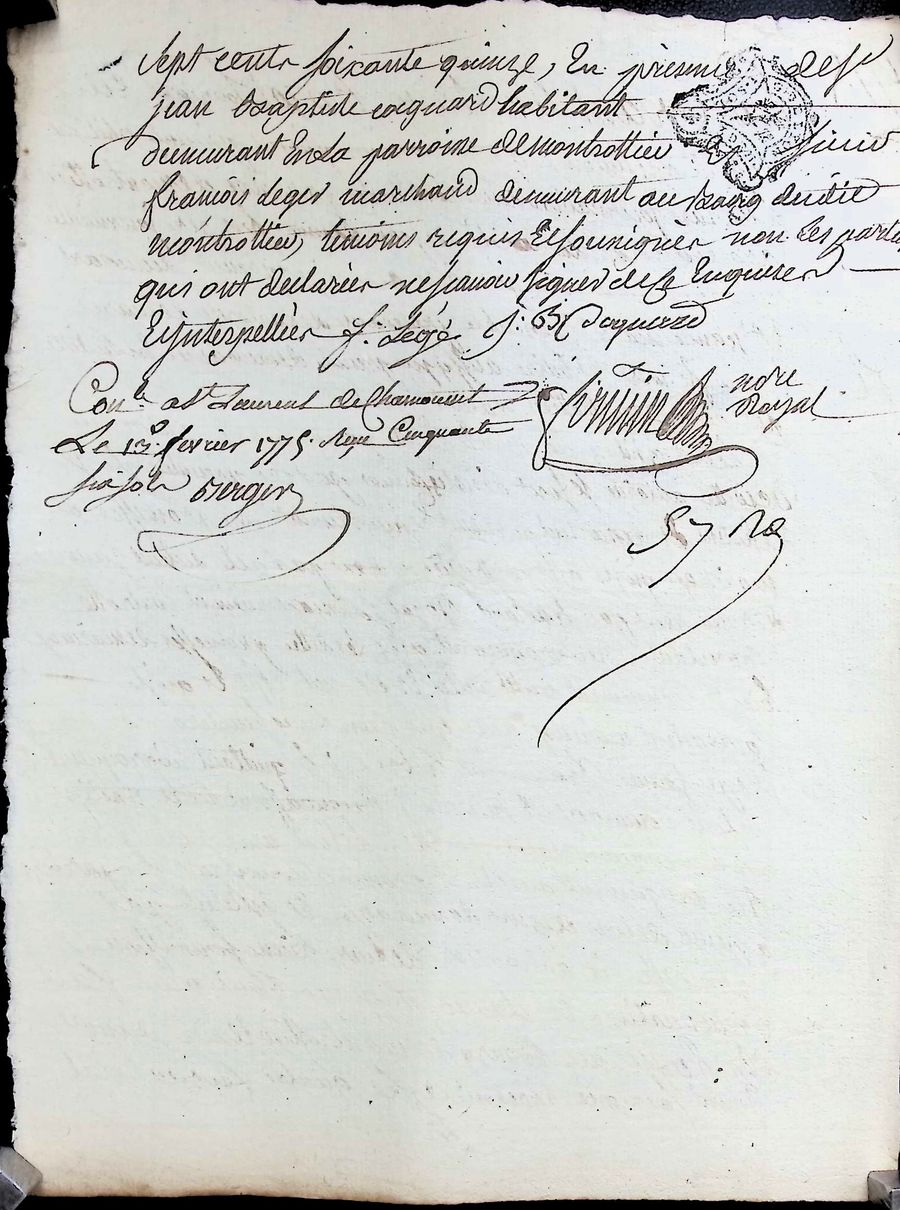 sept cents soixante quinze, En presence de sr
jean Baptiste coquard habitant
demeurant En la parroisse de montrottier sieur
francois leger marchand demeurant au Bourg dudit
montrottier, temoins requis Et soussignés non les parties
qui ont declarées ne scavoir signer de ce Enquises
Et jnterpellées f. Legé j: B: Coquard
Con.lé a st Laurent de Chamousset
Le 13e fevrier 1775. Reçu Cinquante
six sols Berger
no.re
Royal
57